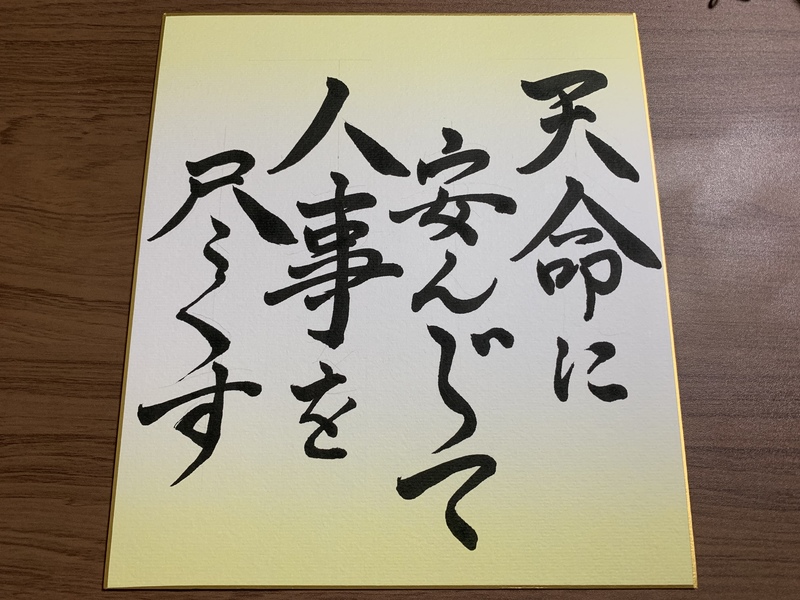 天命に
安んじて
人事を
尽くす